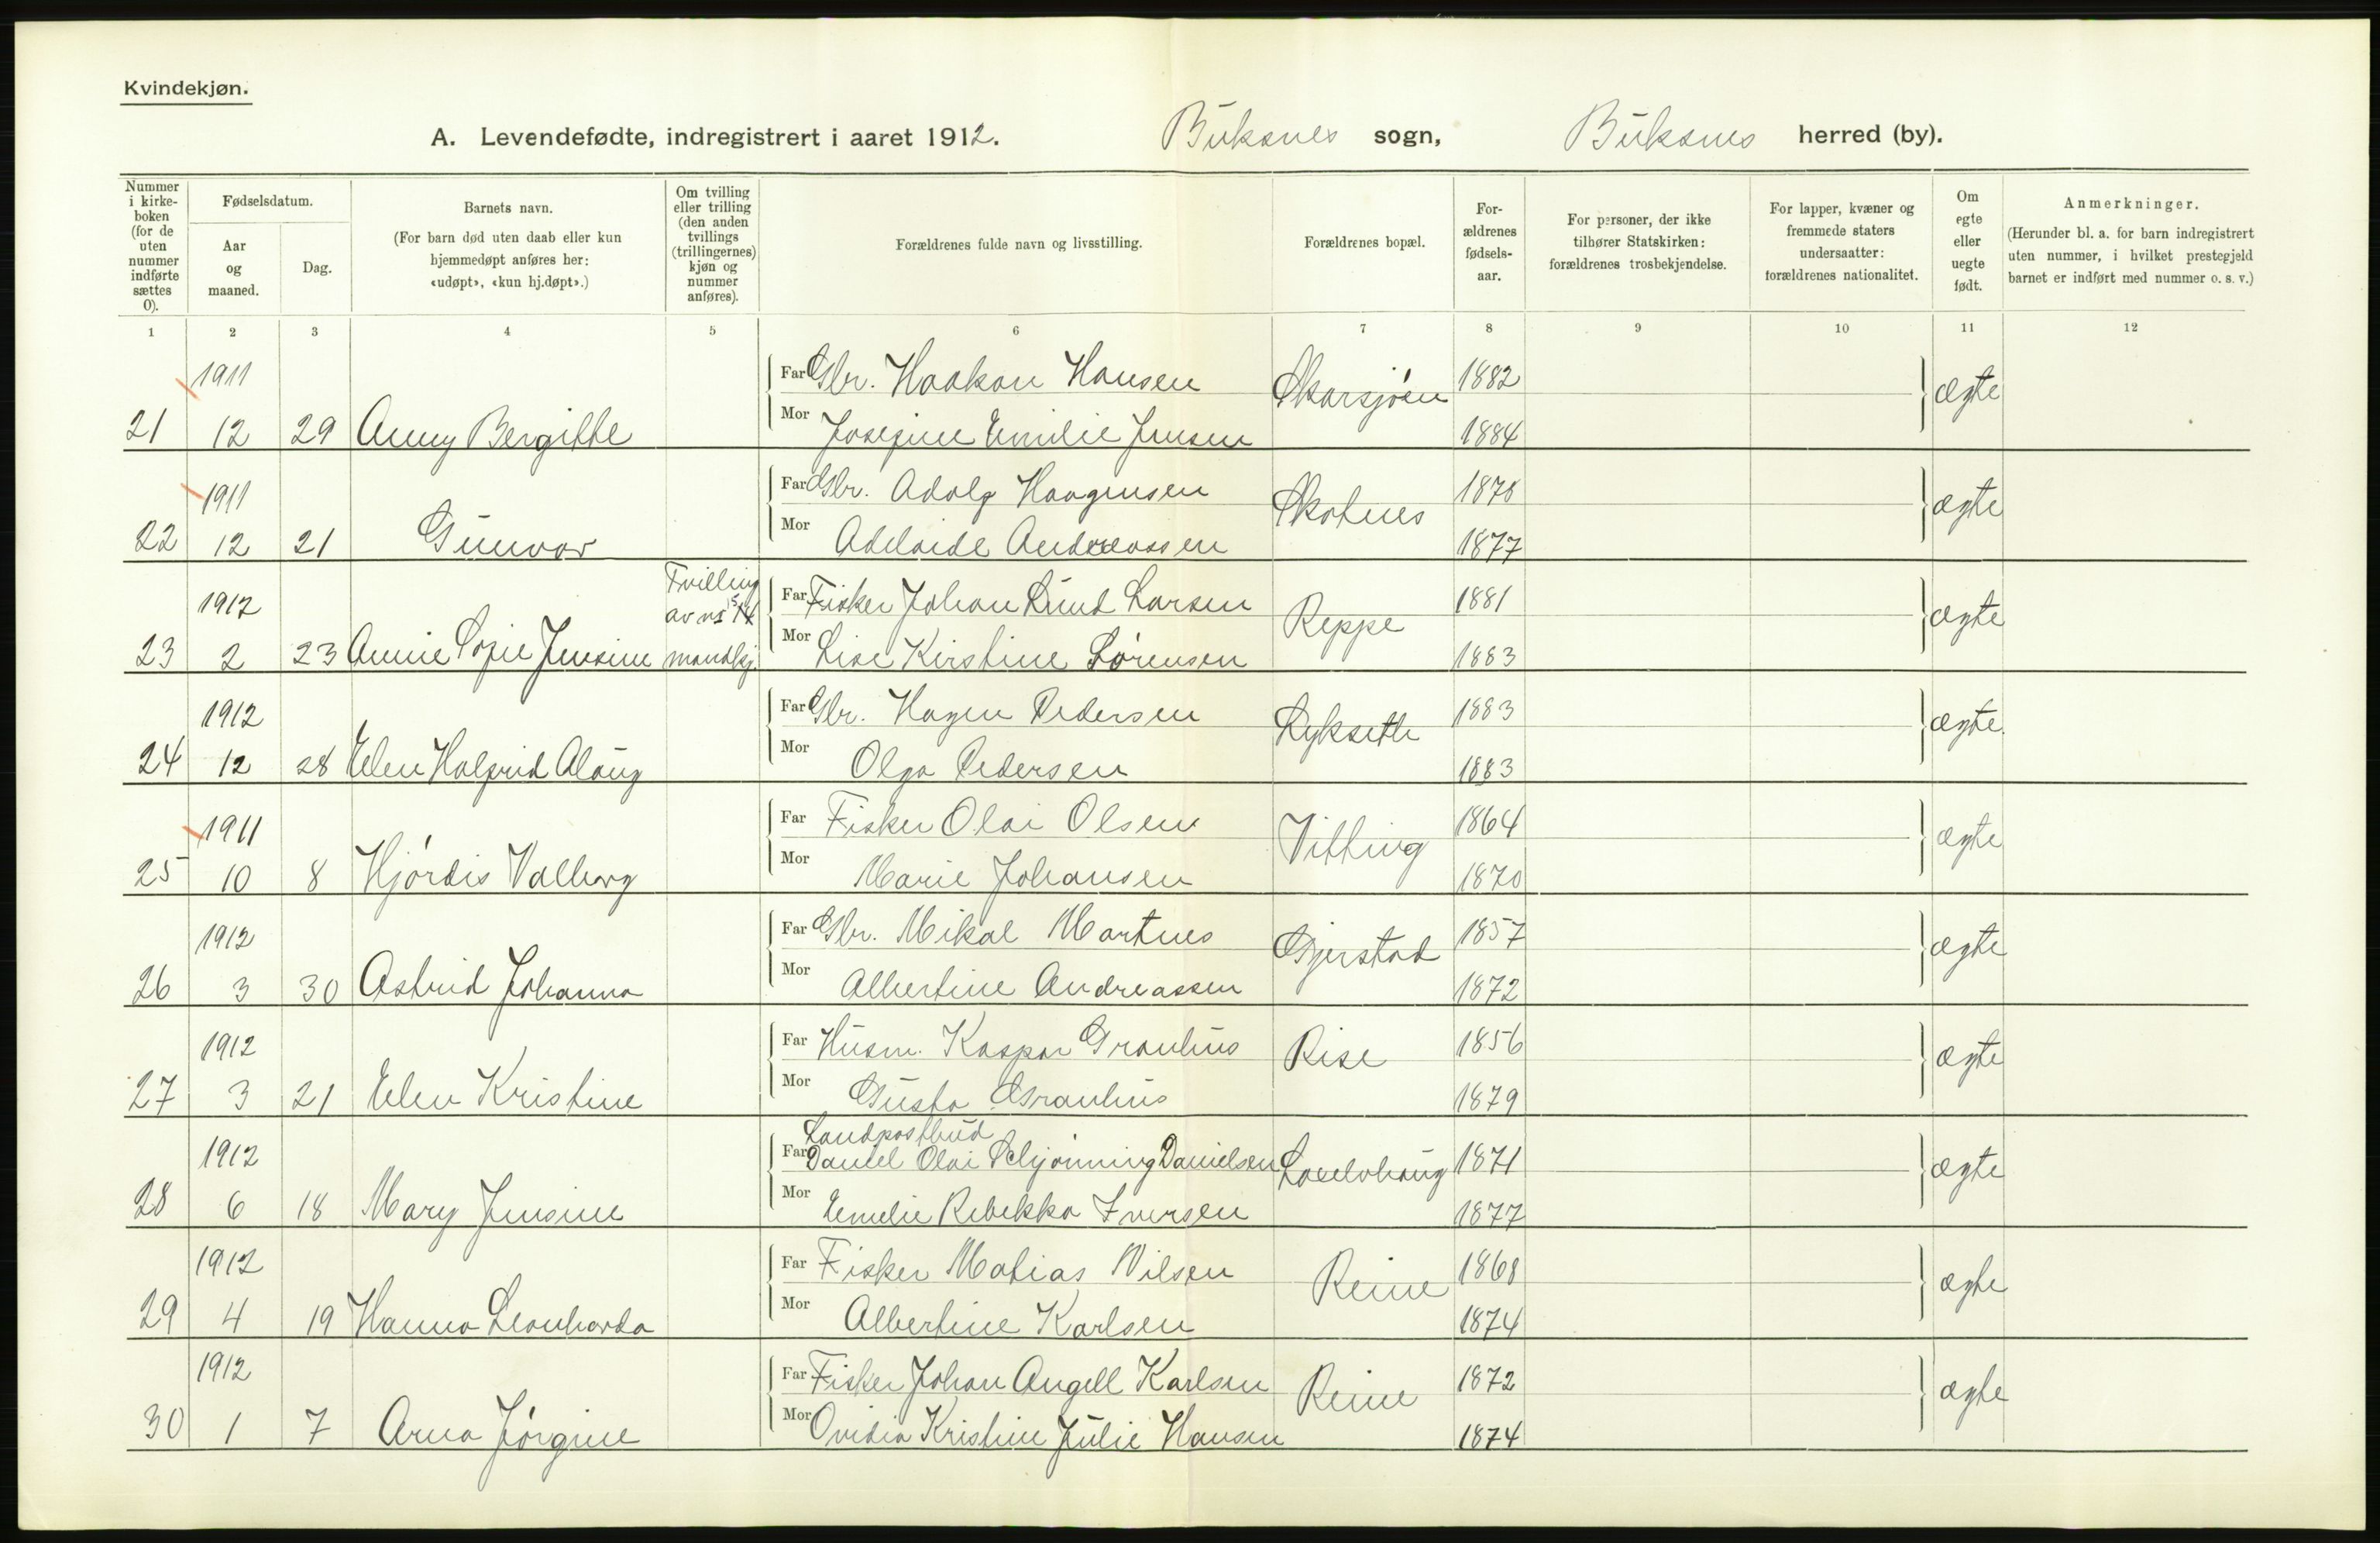 Kvindekjøn.
A. Levendefødte, indregistrert i aaret 1912. Buksnes sogn, Buksnes herred (by).
Nummer i kirke-boken (for de uten nummer indførte sættes 0).
Fødselsdatum.
Aar og maaned.
Dag.
Barnets navn. (For barn død uten daab eller kun hjemmedøpt anføres her: «udøpt», «kun hj.døpt».)
Om tvilling eller trilling (den anden tvillings (trillingernes) kjøn og nummer anføres).
Forældrenes fulde navn og livsstilling.
Forældrenes bopæl.
For-ældrenes fødsels-aar.
For personer, der ikke tilhører Statskirken: forældrenes trosbekjendelse.
For lapper, kvæner og fremmede staters undersaatter: forældrenes nationalitet.
Om egte eller uegte født.
Anmerkninger. (Herunder bl. a. for barn indregistrert uten nummer, i hvilket prestegjeld barnet er indført med nummer o. s. v.)
1 2 3 4 5 6 7 8 9 10 11 12
1911 Far Gbr. Haakon Hansen Skarsjøen 1882 ægte
21 12 29 Anny Bergitte Mor Josefine Emilie Jensen 1884
1911 Far Gbr. Adolf Haagensen Skotnes 1878 ægte
22 12 21 Gunvor Mor Adelaide Andreassen 1877
1912 Tvilling av nr 15 Far Fisker Johan Lund Larsen Reppe 1881 ægte
23 2 23 Annie Sofie Jensine mandkj. Mor Lise Kirstine Sørensen 1883
1912 Far Gbr. Hagen Pedersen Lyksetli 1883 ægte
24 12 28 Elen Halfrid Alaug Mor Olga Pedersen 1883
1911 Far Fisker Olai Olsen Vitting 1864 ægte
25 10 8 Hjørdis Valborg Mor Marie Johansen 1870
1912 Far Gbr. Mikal Martnes Gjerstad 1857 ægte
26 3 30 Astrid Johanna Mor Albertine Andreassen 1872
1912 Far Husm. Kaspar Granhus Rise 1856 ægte
27 3 21 Elen Kristine Mor Gusta Granhus 1879
Landpostbud
1912 Far Daniel Olai Schjønning Danielsen 1871 ægte
28 6 18 Mary Jensine Mor Emelie Rebekka Iversen 1877
1912 Far Fisker Matias Nilsen Reine 1868 ægte
29 4 19 Hanna Leonharda Mor Albertine Karlsen 1874
1912 Far Fisker Johan Angell Karlsen Reine 1872 ægte
30 1 7 Arna Jørgine Mor Ovidia Kristine Julie Hansen 1874